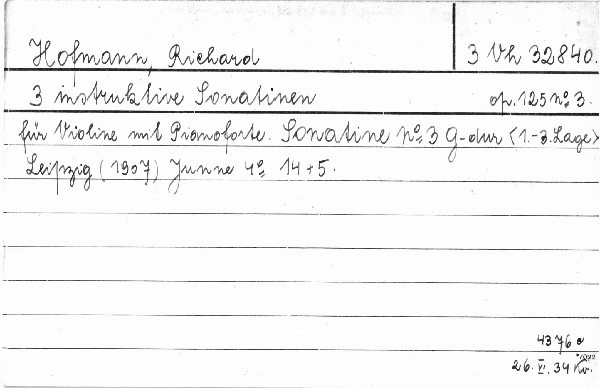 Hofmann, Richard 3 Vh 32840.
3 instruktive Sonatinen op. 125 No. 3.
für Violine mit Pianoforte. Sonatine No. 3 G-dur <1.-3. Lage>
Leipzig (1907) Junne 4o 14+5.
4376
26. VI. 34